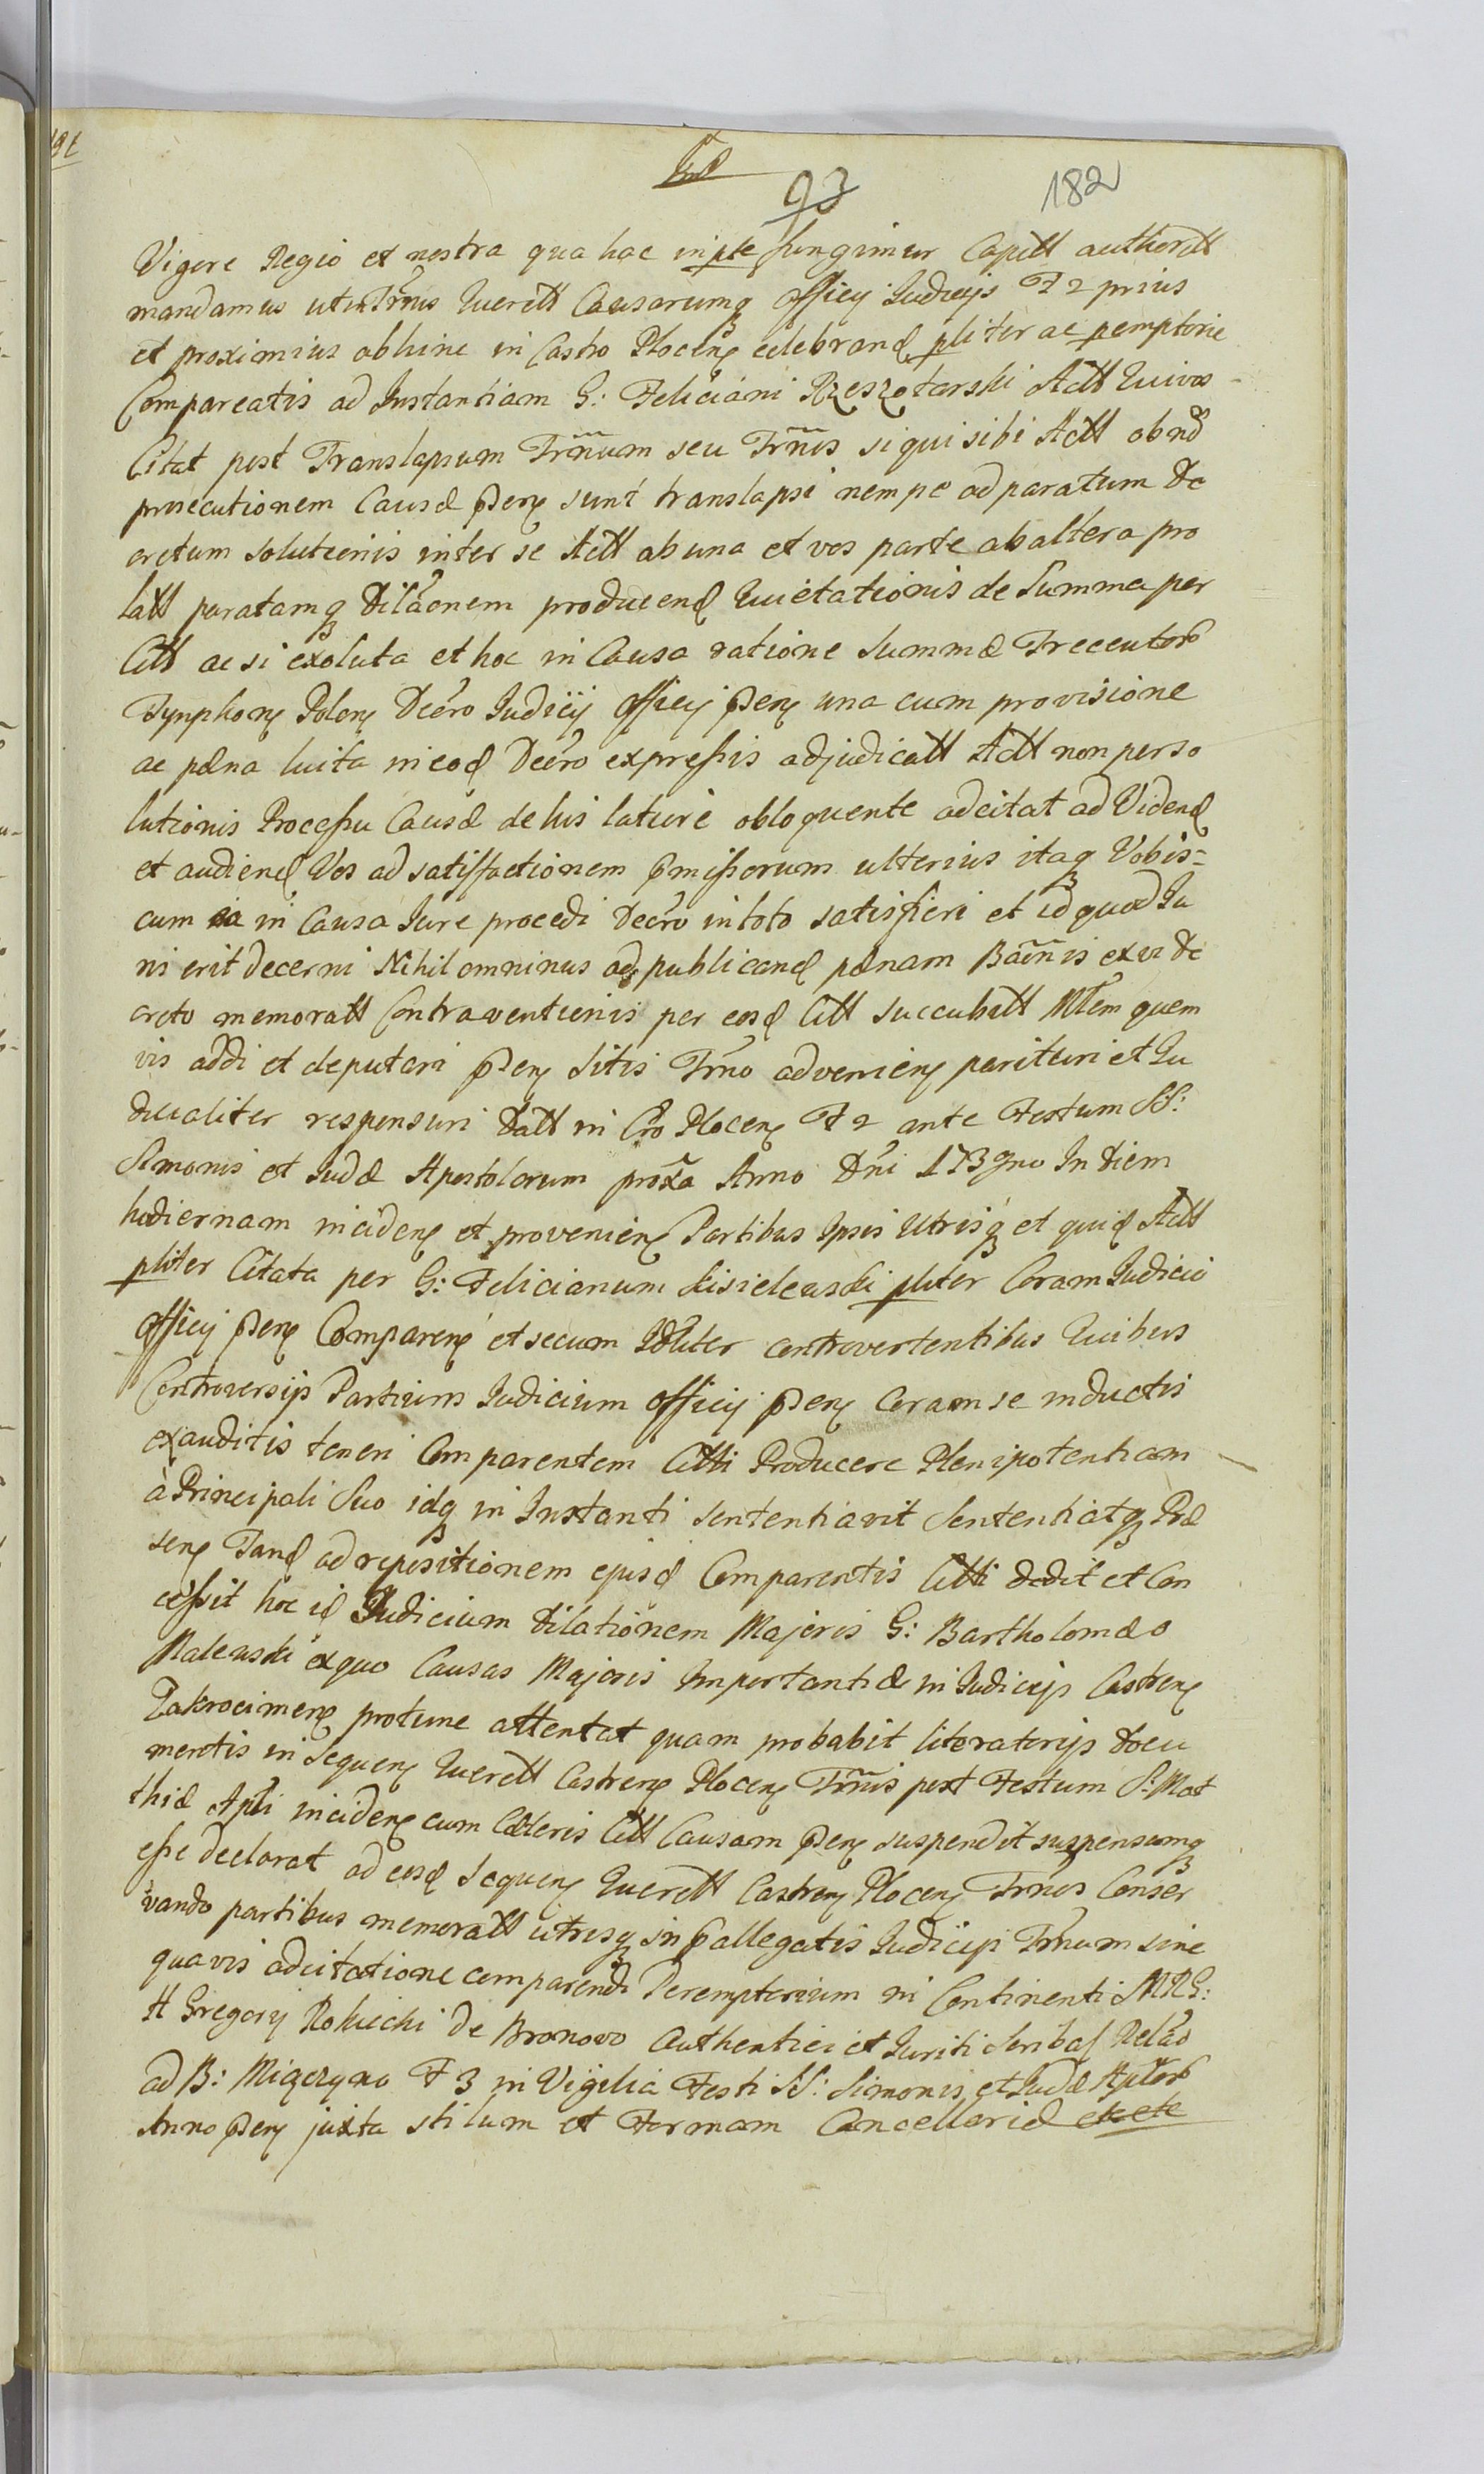 191
93
182
Vigore Regio et nostra qua hac in pte fungimur Capitt authoritt
mandamus ut in Trnis Querett Causarumq Officy Judicijs F 2 prius
et proximius abhinc in Castro Plocen celebrand pliter ac pemptorie
Compareatis ad Instantiam G: Feliciani Rzeszotarski Actt Qui vos
Citat post Translapsum Trnum seu Trnis si qui sibi Actt ob
prosecutionem Causæ pden sunt translapsi nempe ad paratum De
cretum solutionis inter se Actt ab una et vos parte ab altera pro
latt paratamq Dilaonem producend Quietationis de Summa per
Citt ac si exoluta et hoc in Causa ratione Summæ Trecentor
Tynphon Polon Decro Judicij Officij pden una cum provisione
ac pæna luita in eod Decro expressis adjudicatt Actt non perso
lutionis Processu Causæ de his latiure obloquente adcitat ad Vidend
et audiend Vos ad satisfactionem pmissorum ulterius itaq Vobis=
cum in Causa Jure procedi Decro in toto satisfieri et id quod Ju
ris erit decerni Nihilominus ad publicand pænam Bannis ex vi De
creto memoratt Contraventionis per eosd Citt succubitt Mlem quem
vis addi et deputari pden Sitis Trno advenien parituri et Ju
dicialiter responsuri Datt in Cro Plocen F 2 ante Festum SS:
Simonis et Judæ Apostolorum proxa Anno Dni 1739no In Diem
hodiernam inciden et provenien Partibus Ipsis Utrisq et quid Actt
pliter Citata per G: Felicianum Kisielewski pliter Coram Judicio
Officij pden Comparen et secum Jdliter controvertentibus Quibus
Controversijs Partium Judicium Officij pden Coram se inductis
exauditis teneri Comparentem Citti Producere Plenipotentiam
à Principali Suo idq in Instanti sententiavit Sententiatq Præ
sen Tand ad repositionem ejusd Comparentis Citti dedit et Con
cessit hoc id Judicium Dilationem Majoris G: Bartholomæo
Malewski ex quo Causas Majoris Importantiæ in Judicijs Castren
Zakrocimen protunc attentat quam probabit literatorijs Docu
mentis in Sequen Querett Castren Plocen Trnis post Festum S: Mat
thiæ Apli inciden cum Cæteris Citt Causam pden suspendit suspensamq
esse declarat ad eosd Sequen Querett Castren Plocen Trnos Conser
vando partibus memoratt utrisq in pallegatis Judicijs Trnum sine
quavis adcitatione comparendi Peremptorium in Continenti MRG:
H Gregorij Rokicki de Bronowo Authentici et Juriti Scribæ Relao
ad B: F 3 in Vigilia Festi SS: Simonis et Judæ Aplor
Anno pden juxta stilum et Formam Cancellariæ etc etc